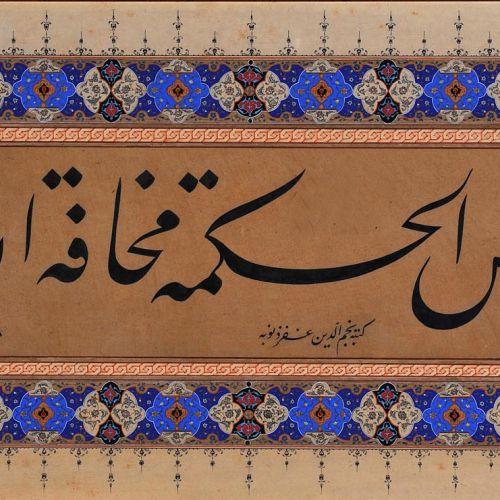 الحكمة مخافة
كتبه نجم الدين غفر ذنوبه